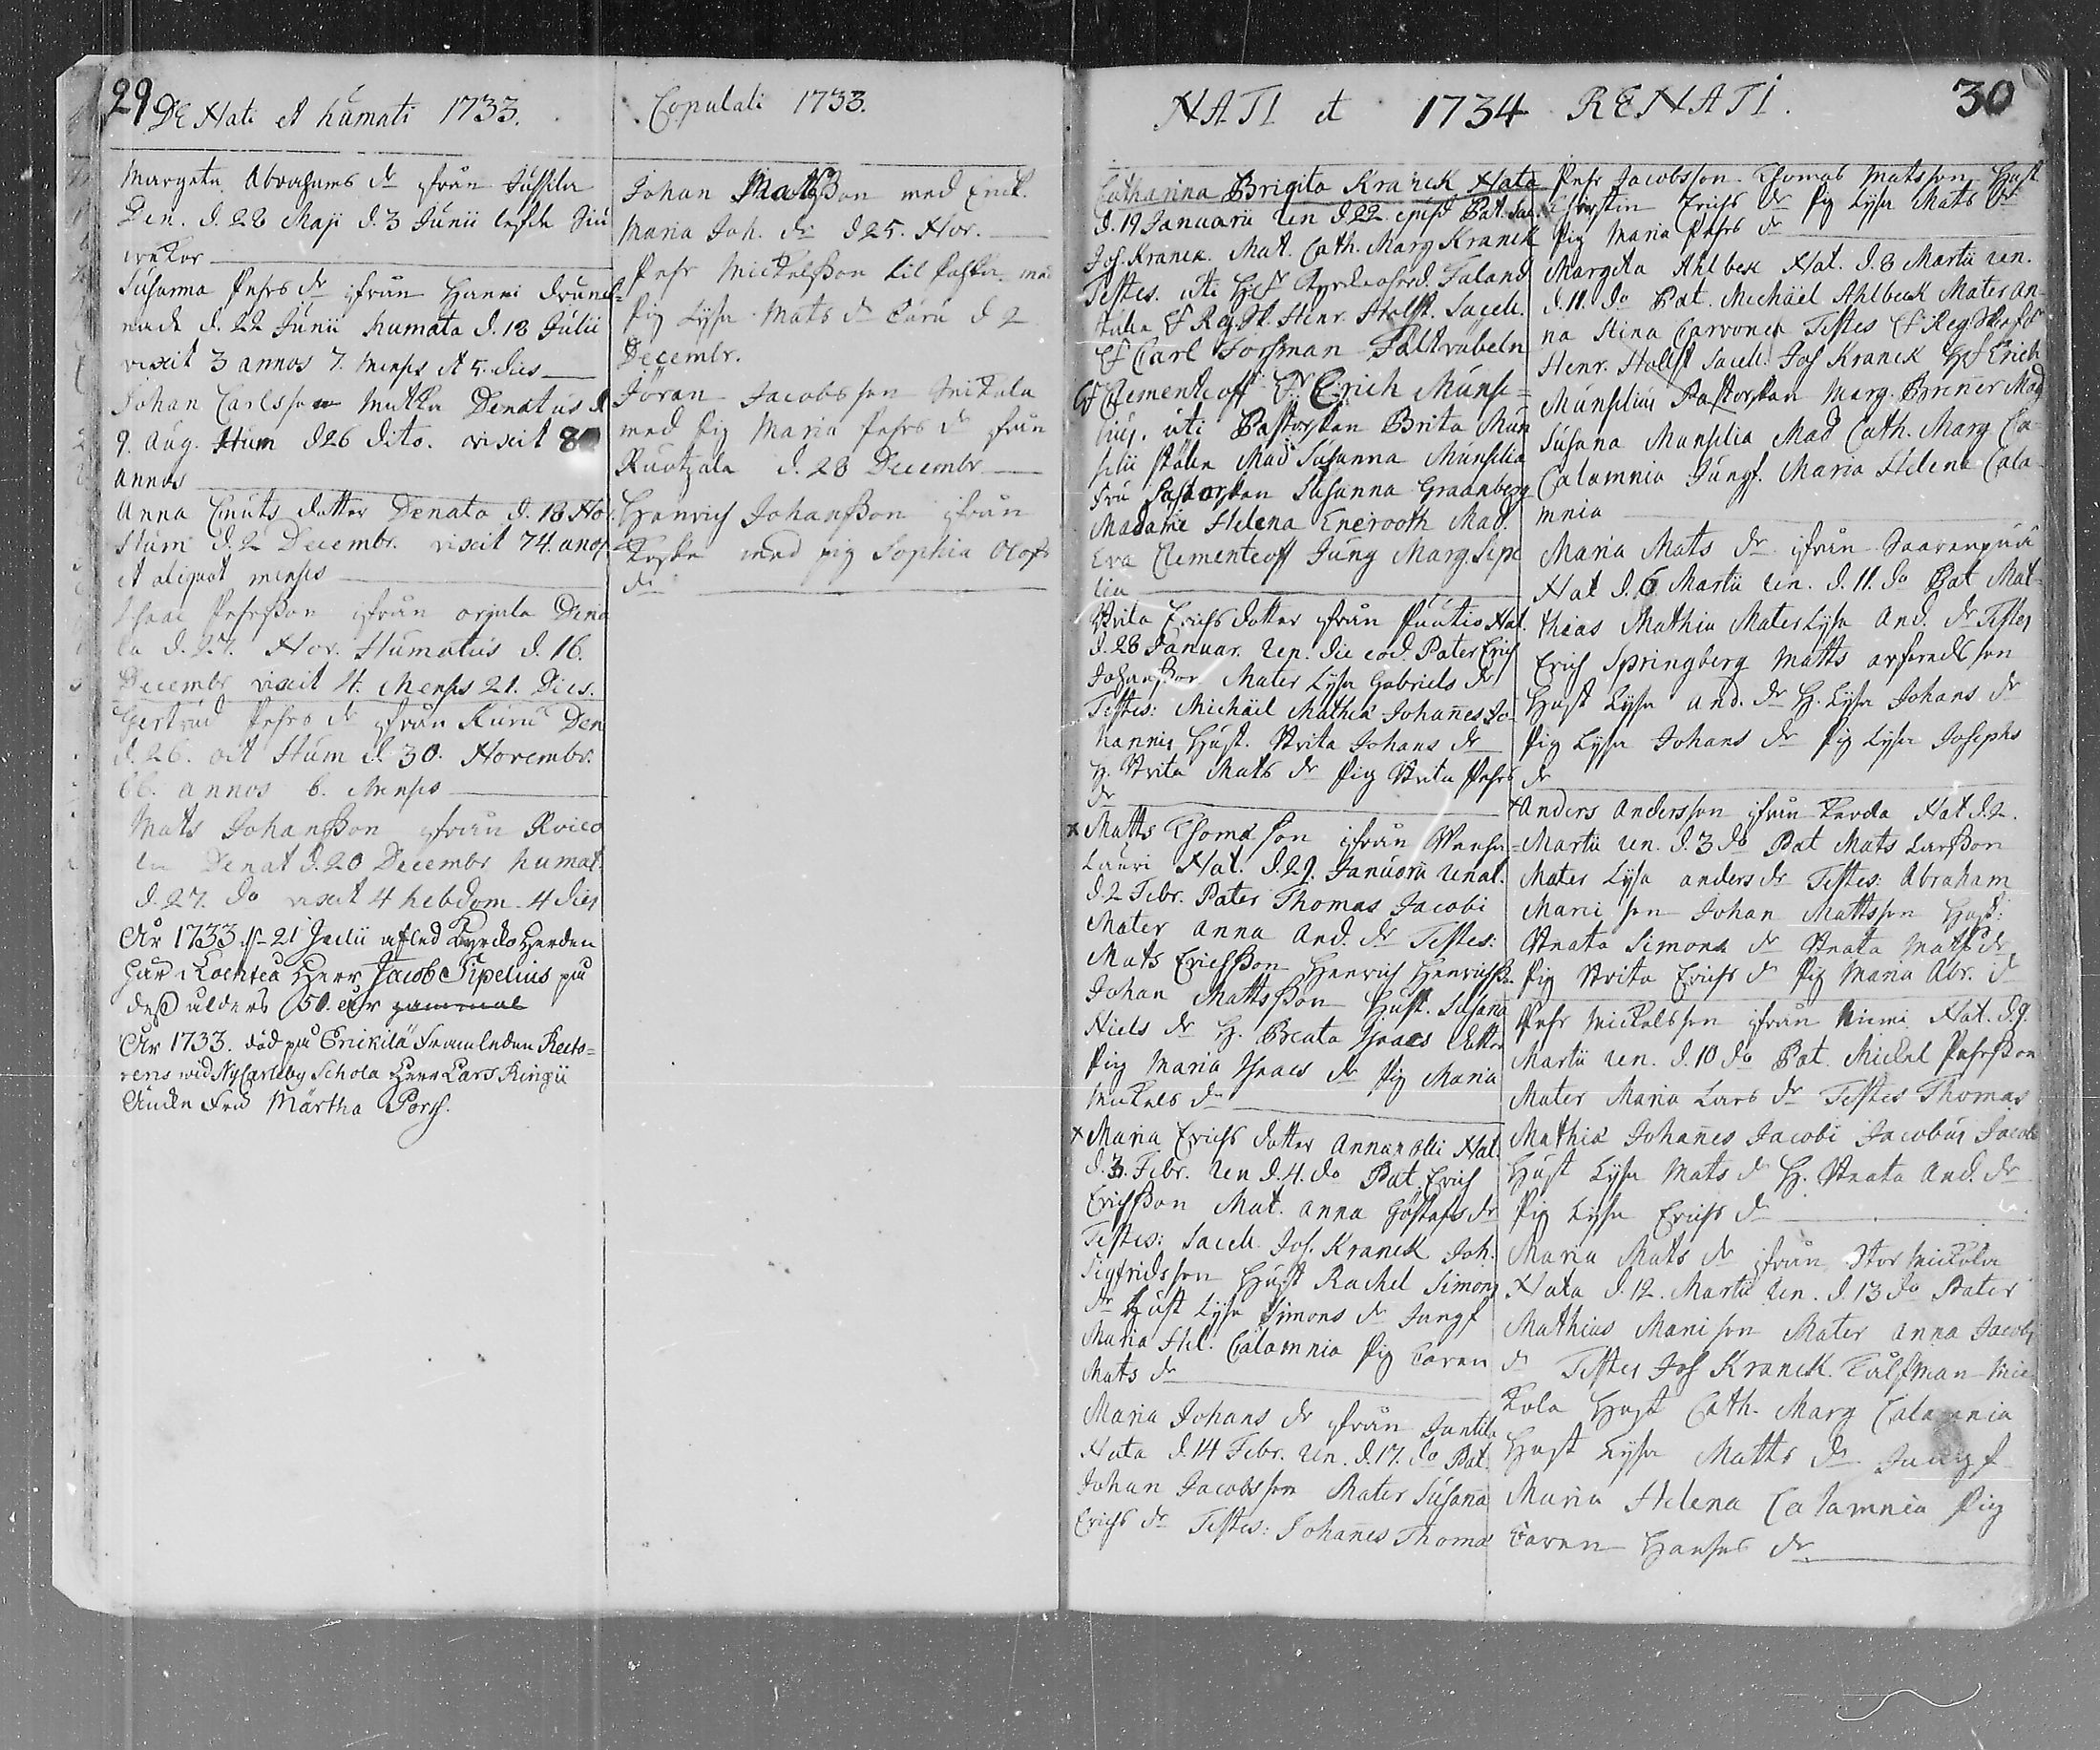 29
DE Nati et humati 1733.
Margeta Abrahams dr ifrån Jussila
Den. d. 28 Maji d. 3 Junii lefde Siu
wekor
Susanna Pehrs dr ifrån Hanni drunk-
nade d. 22 Junii humata d. 18 Julii
vixit 3 annos 7. menses et 5. dies
Johan Carlsson Mutka Denatus d
9. Aug. Hum d 26 dito. vixit
annos
Anna Cnuts dotter Denata d. 18 Nov.
Hum d. 2 Decembr. vixit 74. anos
et aliquot menses
Isaac Pehrsson ifrån orjala Dena
tu d. 27. Nov. Humatus d. 16.
Decembr vixit 4. Menses 21. Dies.
Gertrud Pehrs dr ifrån Kuru Den
d. 26. oct Hum d 30. Novembr.
66. annos 6. Menses
Mats Johansson ifrån Roico
la Denat d. 20 Decembr humat.
d. 27. do vixit 4 hebdom. 4 dies
År 1733. d. 21 Julii afled Kyrckoherden
här i Lochteå Herr Jacob Sipelius på
dess ålders 50. åhr gammal
År 1733. död på Erickilä Framledne Recto-
rens wid NyCarleby Schola Herr Lars Ringii
Änckn Fru Märtha Pors.
Copulati 1733.
Johan Matsson med Enck.
Maria Joh. dr d 25. Nov.
Pehr Mickelsson til Paska med
Pig Lysa Mats dr Curu d 2
Decembr.
Jöran Jacobsson Mickala
med Pig Maria Pehrs dr ifrån
Ruotzala d. 28 Decembr
Henrich Johansson ifrån
Koske med pig Sophia Olofs
dr
30
NATI et 1734 RENATI.
Catharina Brigita Kranck Nata
d. 19 Januarii Ren d 22. ejusd Pat. Sac.
Jos. Kranck. Mat. Cath. Marg Kranck
Testes. uti H:r Kyrckoherd. Faland
stälm H Reg. Sk. Henr. Holst. Sacell.
H Carl Forsman Fältväbeln
H Clementeoff H Erich Munse-
lius. uti Pastorskan Brita Mun
selii stälen Mad Susanna Munselia
Fru Pastorskan Susanna Graanberg
Madame Helena Enerooth Mad.
Eva Clementeoff Jung Marg. Sipe
lia
Brita Erichs dotter ifrån Puutio Nat.
d. 28 Januar. Ren. die eod. Pater Erich
Johansson Mater Lysa Gabriels dr
Testes: Michäel Mathiæ Johanes Jo-
hannis Hust. Brita Johans dr
H. Brita Mats dr Pig Brita Pehrs
dr
x Matts Thomæ son ifrån Wanha-
Lauri Nat. d. 29. Januarii Renat.
d. 2 Febr. Pater Thomas Jacobi
Mater Anna And. dr Testes:
Mats Erichsson Henrich Henrichss.
Johan Mattsson Hust. Susana
Niels dr H. Beata Isaacs dotter
Pig Maria Isaacs dr Pig Maria
Mickels dr
x Maria Erichs dotter Annanolli Nat.
d. 3. Febr. Ren d. 4. do Pat. Erich
Erichsson Mat. Anna Göstafs dr
Testes: Sacell. Jos. Kranck Joh.
Sigfridsson Hust Rachel Simons
dr Hust Lysa Simons dr Jungf
Maria Hel. Calamnia Pig Caren
Mats dr
Maria Johans dr ifrån Juntila
Nata d. 14 Febr. Ren. d. 17. do Pat.
Johan Jacobsson Mater Susana
Erichs dr Testes: Johanes Thomæ
Pehr Jacobsson Thomas Matsson Hust
Chirstin Erichs dr Pig Lysa Mats dr
Pig Maria Pehrs dr
Margeta Ahlbeck Nat. d. 8 Martii Ren.
d. 11. do Pat. Michäel Ahlbeck Mater An-
na Stina Carvonen Testes H Reg. Skrifv
Henr. Hollst Sacell: Jos Kranck H Erich
Munselius Pastorskan Marg. Brenner Mad
Susana Munselia Mad Cath. Marg Ca-
Calamnia Jungf. Maria Helena Cala-
mnia
Maria Mats dr ifrån Saarenpää
Nat d. 6 Martii Ren. d. 11. do Pat Mat-
thias Mathiæ Mater Lysa And. dr Testes
Erich Springberg Matts arfvedsson
Hust Lysa And. dr H. Lysa Johans dr
Pig Lysa Johans dr Pig Lysa Josephs
dr
x Anders Andersson ifrån Kerola Nat d. 2.
Martii Ren. d. 3 do Pat Mats Larsson
Mater Lysa anders dr Testes: Abraham
Marci son Johan Mattsson Hust:
Beata Simons dr Beata Matts dr
Pig Brita Erichs dr Pig Maria Abr. dr
Pehr Mickelsson ifrån Niemi Nat. d. 9.
Martii Ren. d. 10 do Pat. Mickel Pehrsson
Mater Maria Lars dr Testes Thomas
Mathiæ Johanes Jacobi Jacobus Jacobi
Hust Lysa Mats dr H. Beata And. dr
Pig Lysa Erichs dr
Maria Mats dr ifrån Stor Mickola
Nata d. 12. Martii Ren. d. 13 do Pater
Mathias Mani son Mater Anna Jacobs
dr Testes Jos Kranck. Tålfman Mic
kola Hust Cath. Marg Calamnia
Hust Lysa Matts dr Jungf
Maria Helena Calamnia Pig
Caren Hanses dr